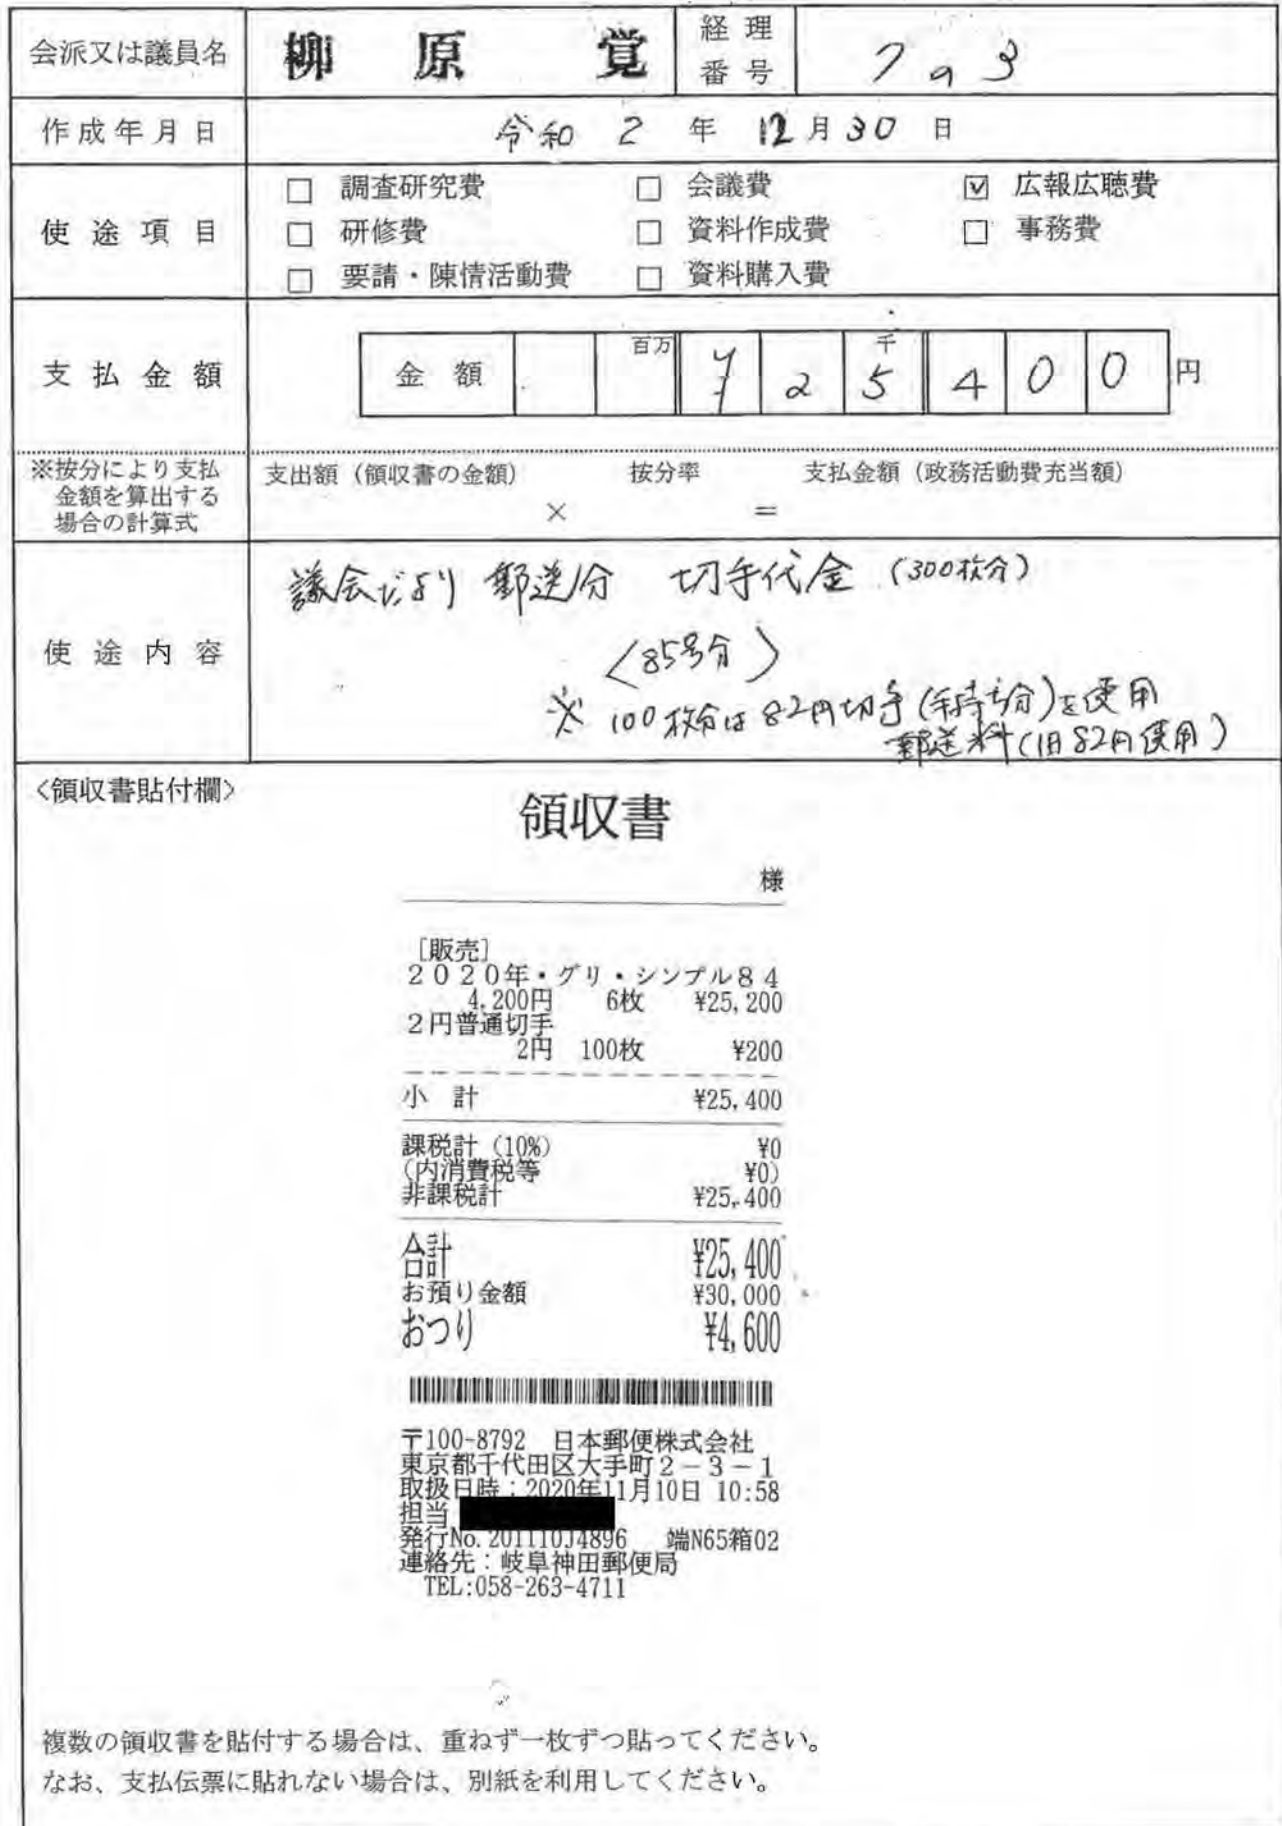 会派又は議員名 柳原 覚 経理番号 7の3
作成年月日 令和 2 年 12月30日
使途項目
□ 調査研究費 □ 会議費 ☑ 広報広聴費
□ 研修費 □ 資料作成費 □ 事務費
□ 要請・陳情活動費 □ 資料購入費
支払金額 金額 百万 ¥ 2 千 5 4 0 0 円
※按分により支払金額を算出する場合の計算式 支出額（領収書の金額） 按分率 支払金額（政務活動費充当額）
× ＝
使途内容
議会だより 郵送分 切手代金（300枚分）
〈85号分〉
※ 100枚分は82円切手(手持ち分)を使用
郵送料(旧82円使用)
<領収書貼付欄>
領収書
様
［販売］
２０２０年・グリ・シンプル８４
4,200円 6枚 ¥25,200
２円普通切手
2円 100枚 ¥200
小 計 ¥25,400
課税計（10%） ¥0
(内消費税等 ¥0)
非課税計 ¥25,400
合計 ¥25,400
お預り金額 ¥30,000
おつり ¥4,600
〒100-8792 日本郵便株式会社
東京都千代田区大手町２－３－１
取扱日時：2020年11月10日 10:58
担当
発行No.201110J4896 端N65箱02
連絡先：岐阜神田郵便局
TEL:058-263-4711
複数の領収書を貼付する場合は、重ねず一枚ずつ貼ってください。
なお、支払伝票に貼れない場合は、別紙を利用してください。